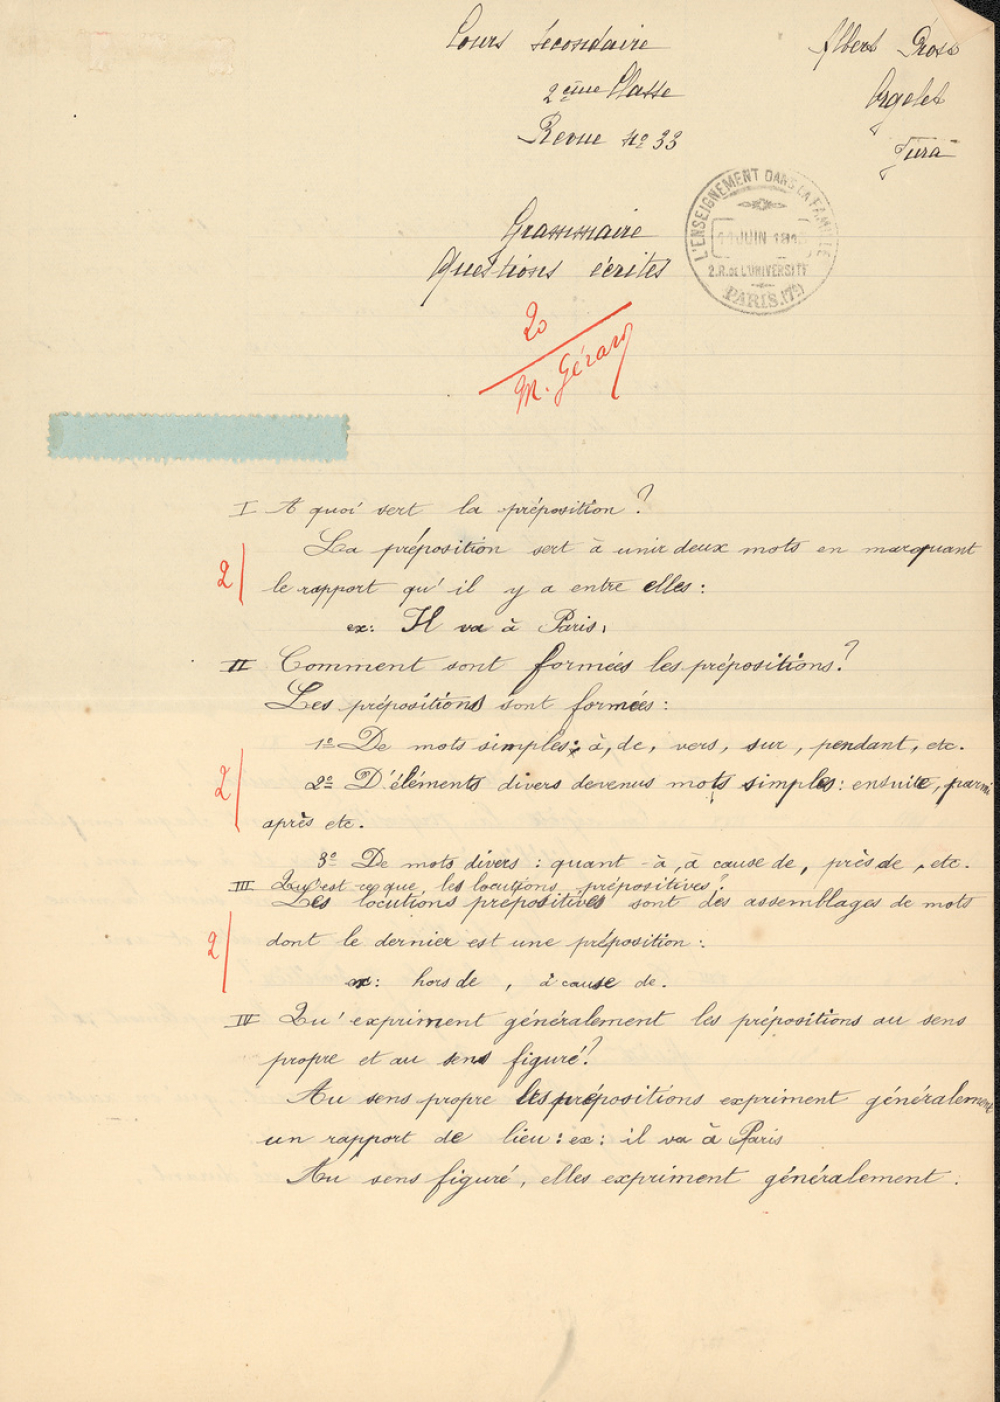 Cours secondaire
2ème Classe
Revue No 33
Albert Gros
Orgelet
Jura
L'ENSEIGNEMENT DANS LA FAMILLE
JUIN
2.R. DE L'UNIVERSITÉ
PARIS (7e)
Grammaire
Questions écrites
20
M. Gérard
I A quoi sert la préposition?
La préposition sert à unir deux mots en marquant
2
le rapport qu'il y a entre elles:
ex: Il va à Paris.
II Comment sont formées les prépositions?
Les prépositions sont formées:
1º De mots simples: à, de, vers, sur, pendant, etc.
2
2º D'éléments divers devenus mots simples: ensuite, parmi
après etc.
3º De mots divers: quant-à, à cause de, près de, etc.
III Qu'est-ce que les locutions prépositives?
Les locutions prépositives sont des assemblages de mots
2
dont le dernier est une préposition:
ex: hors de, à cause de.
IV Qu'expriment généralement les prépositions au sens
propre et au sens figuré?
Au sens propre les prépositions expriment généralement
un rapport de lieu: ex: il va à Paris
Au sens figuré, elles expriment généralement: